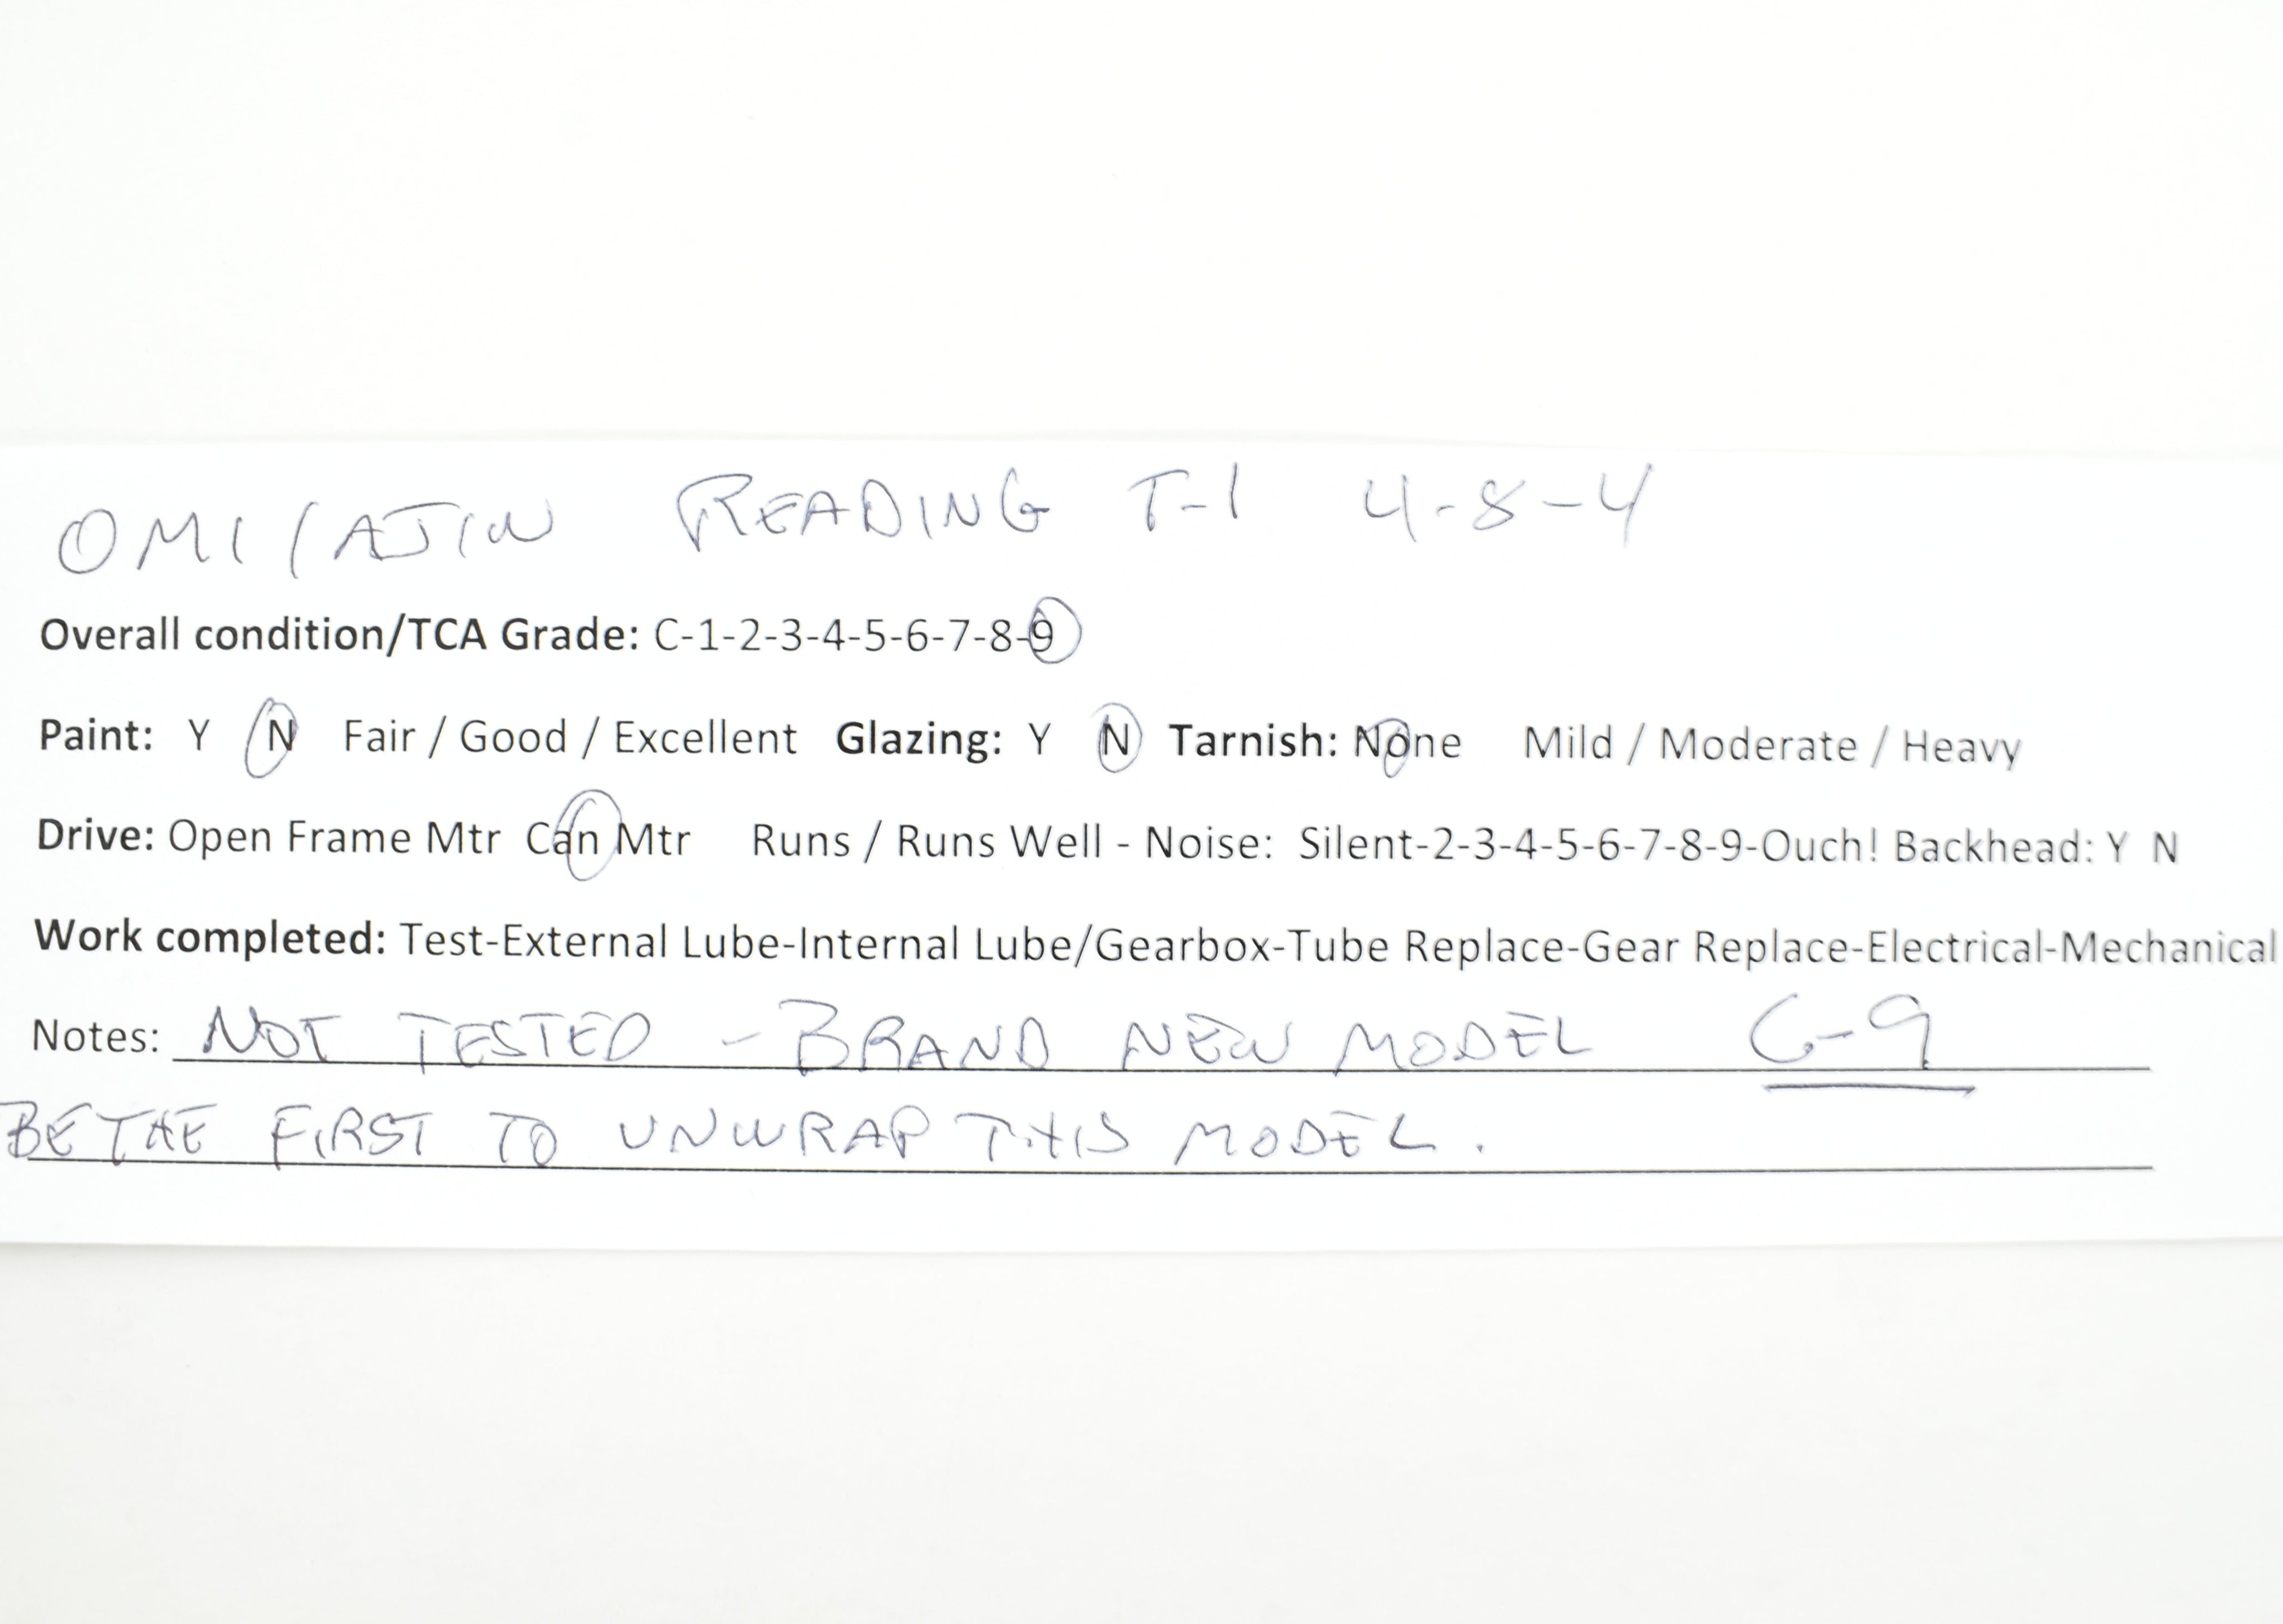 OMI / AJIN READING T-1 4-8-4
Overall condition/TCA Grade: C-1-2-3-4-5-6-7-8-9
Paint: Y N Fair / Good / Excellent Glazing: Y N Tarnish: None Mild / Moderate / Heavy
Drive: Open Frame Mtr Can Mtr Runs / Runs Well - Noise: Silent-2-3-4-5-6-7-8-9-Ouch! Backhead: Y N
Work completed: Test-External Lube-Internal Lube/Gearbox-Tube Replace-Gear Replace-Electrical-Mechanical
Notes: NOT TESTED - BRAND NEW MODEL C-9
BE THE FIRST TO UNWRAP THIS MODEL.